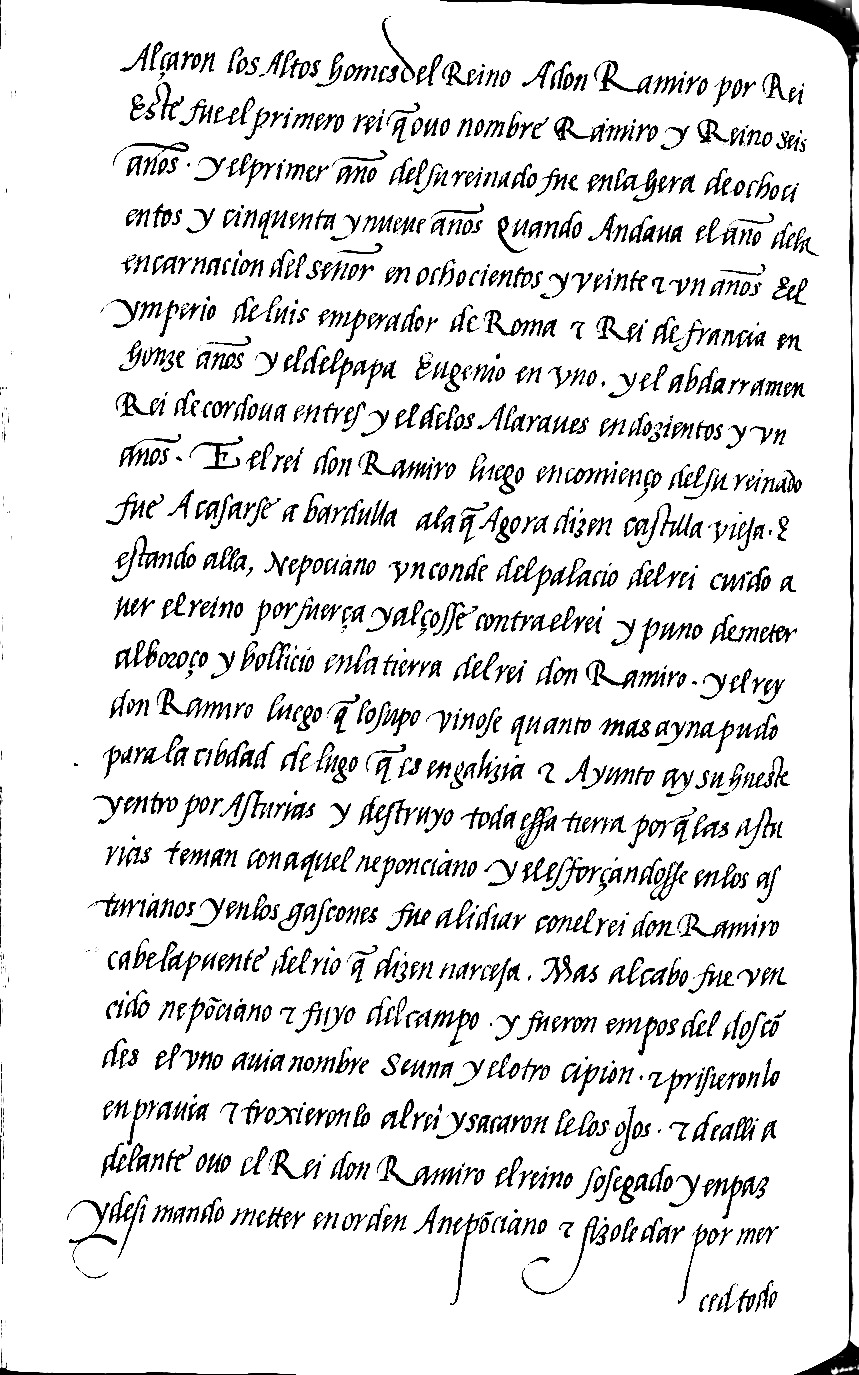 Alçaron los Altos homes del Reino Adon Ramiro por Rei
Este fue el primero rei q̃ ouo nombre Ramiro y Reino seis
años. y el primer año del su reinado fue en la hera de ochoci
entos y cinquenta y nueue años Quando Andaua el año dela
encarnacion del señor en ochocientos y veinte τ vn años E el
ymperio de luis emperador de Roma τ Rei de francia en
honze años y el del papa Eugenio en vno. y el abdarramen
Rei de cordoua en tres y el delos Alaraues en dozientos y vn
años. E el rei don Ramiro luego en comienço del su reinado
fue A casarse a bardulla ala q̃ Agora dizen castilla vieja. E
estando alla, Nepociano vn conde del palacio del rei cuido a
uer el reino por fuerça y alçosse contra el rei y puno de meter
alboroço y bollicio en la tierra del rei don Ramiro. y el rey
don Ramiro luego q̃ lo supo vinose quanto mas ayna pudo
para la cibdad de lugo q̃ es en galizia τ Ayunto ay su hueste
y entro por Asturias y destruyo toda essa tierra porq̃ las astu
rias tenian con aquel neponciano y el esforçandosse en los as
turianos y en los gascones fue a lidiar con el rei don Ramiro
cabe la puente del rio q̃ dizen narceja. Mas al cabo fue ven
cido nepõciano τ fuyo del campo. y fueron empos del dos cõ
des el vno auia nombre Seuna y el otro cipion. τ prisieronlo
en prauia τ troxieronlo al rei y sacaron le los ojos. τ de alli a
delante ouo el Rei don Ramiro el reino sosegado y en paz
y desi mando metter en orden A nepõciano τ fizole dar por mer
ced todo